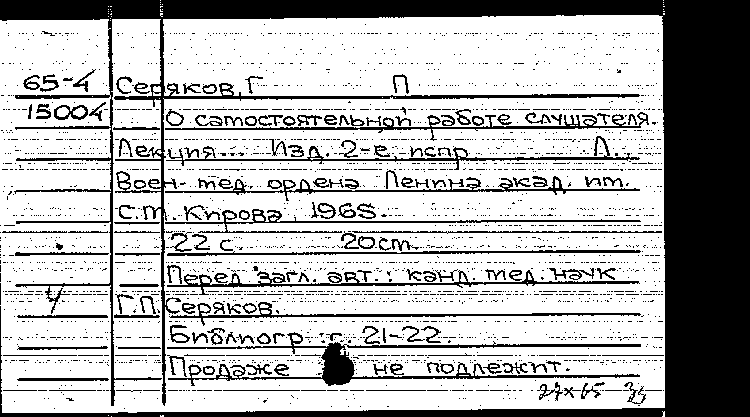 65-4 Серяков, Г П
15004 О самостоятельной работе слушателя.
Лекция... Изд. 2-е, испр. Л.,
Воен-мед. ордена Ленина акад. им.
С.М. Кирова, 1965.
22 с. 20см.
Перед загл. авт.: канд. мед. наук
Г.П. Серяков.
Библиогр.: с. 21-22.
Продаже не подлежит.